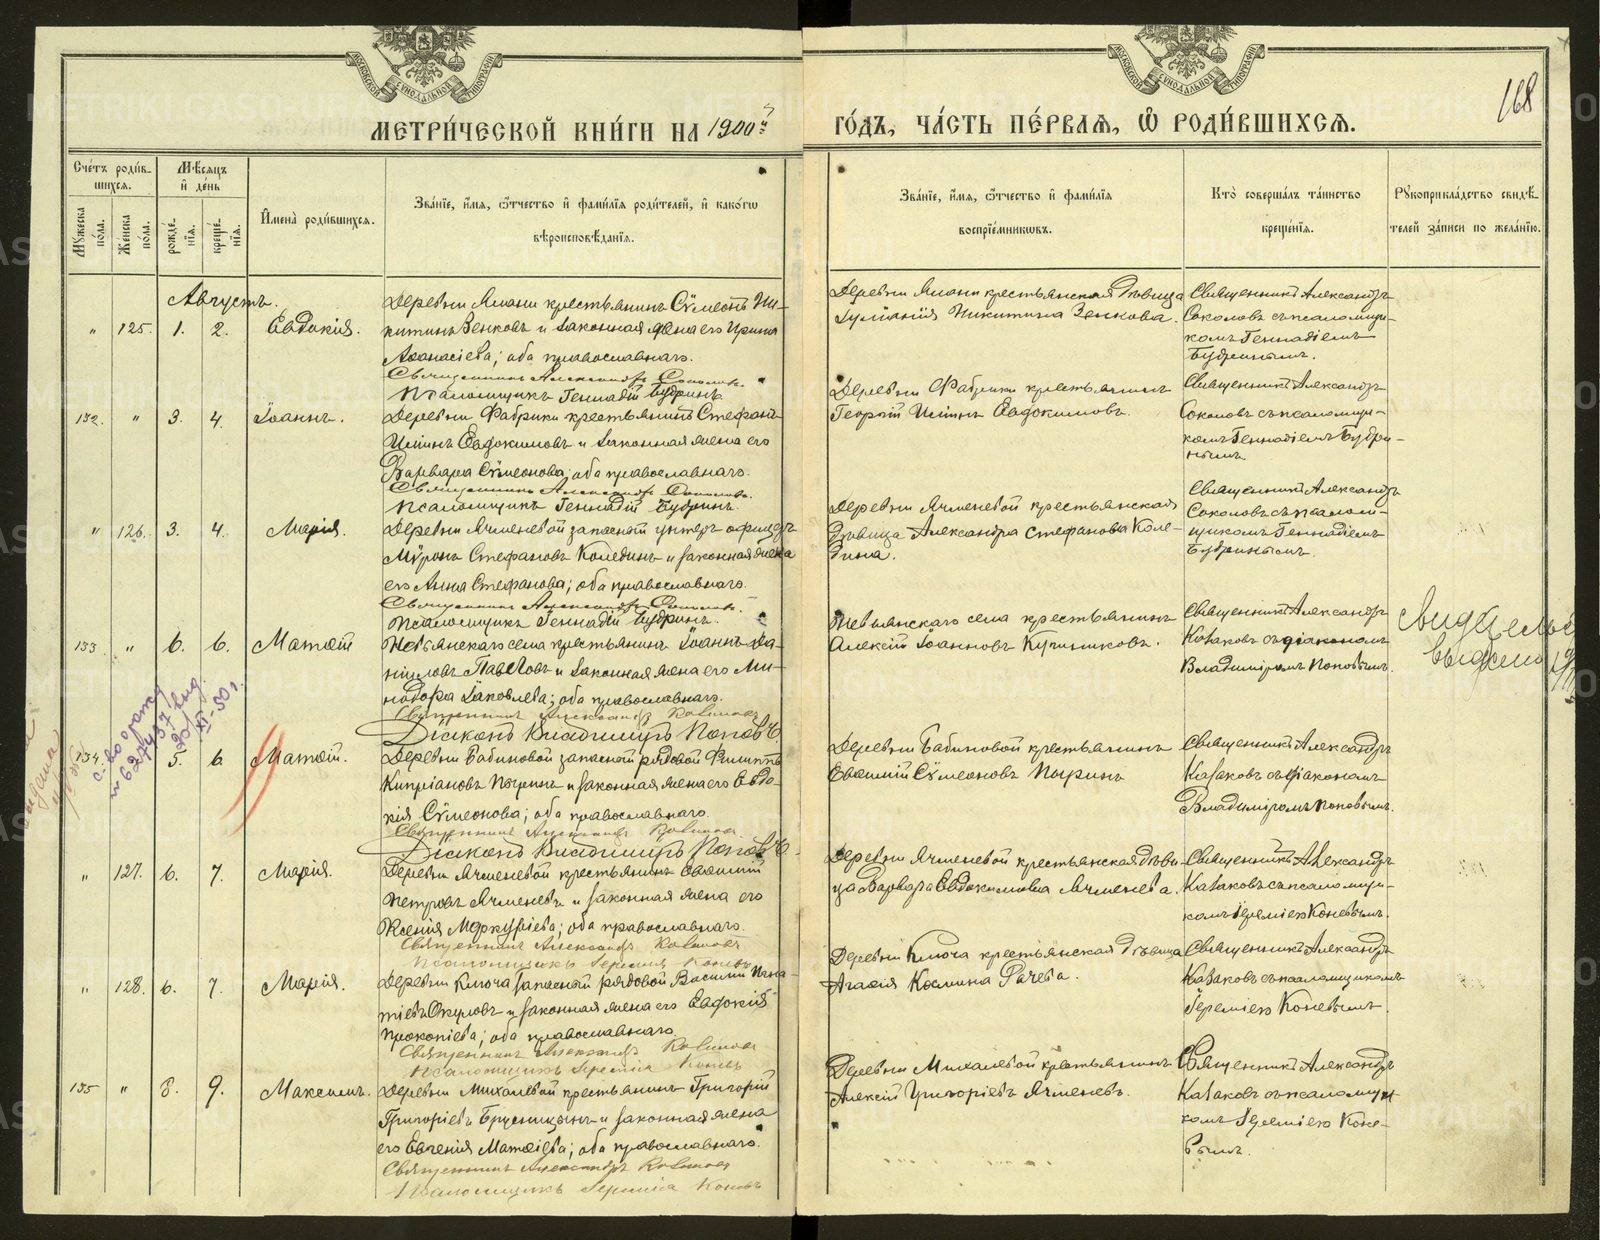 168
МЕТРИ́ЧЕСКОЙ КНИ́ГИ НА 1900й
ГО́ДЪ, ЧА́СТЬ ПЕ́РВАЯ, Ѡ҆ РОДИ́ВШИХСЯ.
Сче́тъ роди́в-
шихся.
Мꙋ́жеска по́ла.
Же́нска по́ла.
Мѣ́сяцъ
и҆ де́нь
рожде́-
нїя.
креще́-
нїя.
И҆мена̀ роди́вшихся.
Зва́нїе, и҆́мя, ѻ҆́тчество и҆ фами́лїя роди́телей, и҆ како́гѡ
вѣроисповѣ́данїя.
Зва́нїе, и҆́мя, ѻ҆́тчество и҆ фами́лїя
воспрїе́мникѡвъ.
Кто̀ соверша́лъ та́инство
креще́нїя.
Рꙋкоприкла́дство свидѣ́-
телей за́писи по жела́нїю.
Августъ.
" 125. 1. 2. Евдокія.
Деревни Ялани крестьянинъ Сѵмеонъ Ни-
китинъ Зенковъ и законная жена его Ирина
Аѳанасіева; оба православнаго.
Священникъ Александръ Соколовъ.
Псаломщикъ Геннадій Будринъ.
Деревни Ялани крестьянская дѣвица
Іуліанія Никитина Зенкова.
Священникъ Александръ
Соколовъ съ псаломщи-
комъ Геннадіемъ
Будринымъ.
132. " 3. 4. Іоаннъ.
Деревни Фабрики крестьянинъ Стефанъ
Ильинъ Евдокимовъ и законная жена его
Варвара Сѵмеонова; оба православнаго.
Священникъ Александръ Соколовъ.
Псаломщикъ Геннадій Будринъ.
Деревни Фабрики крестьянинъ
Георгій Ильинъ Евдокимовъ.
Священникъ Александръ
Соколовъ съ псаломщи-
комъ Геннадіемъ Будри-
нымъ.
" 126. 3. 4. Марія.
Деревни Ячменевой запасный унтеръ офицеръ
Мѵронъ Стефановъ Колединъ и законная жена
его Анна Стефанова; оба православнаго.
Священникъ Александръ Соколовъ.
Псаломщикъ Геннадій Будринъ.
Деревни Ячменевой крестьянская
дѣвица Александра Стефанова Коле-
дина.
Священникъ Александръ
Соколовъ съ псалом-
щикомъ Геннадіемъ
Будринымъ.
133 " 6. 6. Матѳій
Невьянскаго села крестьянинъ Іоаннъ Да-
ниловъ Павловъ и законная жена его Ми-
нодора Іаковлева; оба православнаго.
Священникъ Александръ Казаковъ
Діаконъ Владиміръ Поповъ
Невьянскаго села крестьянинъ
Алексій Іоанновъ Кучниковъ.
Священникъ Александръ
Казаковъ съ діакономъ
Владиміромъ Поповымъ.
134. 5. 6 Матѳій.
Деревни Бабиновой запасный рядовой Филиппъ
Кипріановъ Пыринъ и законная жена его Евдо-
кія Сѵмеонова; оба православнаго.
Священникъ Александръ Казаковъ
Діаконъ Владиміръ Поповъ
Деревни Бабиновой крестьянинъ
Евѳимій Сѵмеоновъ Пыринъ
Священникъ Александръ
Казаковъ съ діакономъ
Владиміромъ Поповымъ.
" 127. 6. 7. Марія.
Деревни Ячменевой крестьянинъ Евѳимій
Петровъ Ячменевъ и законная жена его
Ксенія Меркуріева; оба православнаго.
Священникъ Александръ Казаковъ
Псаломщикъ Іеремія Коневъ
Деревни Ячменевой крестьянская дѣви-
ца Варвара Евдокимовна Ячменева.
Священникъ Александръ
Казаковъ съ псаломщи-
комъ Іереміею Коневымъ.
" 128. 6. 7. Марія.
Деревни Ключа запасный рядовой Василій Игна-
тіевъ Окуловъ и законная жена его Евдокія
Прокопіева; оба православнаго.
Священникъ Александръ Казаковъ
Псаломщикъ Іеремія Коневъ
Деревни Ключа крестьянская дѣвица
Агафія Космина Рачева.
Священникъ Александръ
Казаковъ съ псаломщикомъ
Іереміею Коневымъ.
135 " 8. 9. Максимъ.
Деревни Михалевой крестьянинъ Григорій
Григоріевъ Брусницынъ и законная жена
его Евгенія Матѳіева; оба православнаго.
Священникъ Александръ Казаковъ
Псаломщикъ Іеремія Коневъ
Деревни Михалевой крестьянинъ
Алексій Григоріевъ Ячменевъ.
Священникъ Александръ
Казаковъ съ псаломщи-
комъ Іереміею Коне-
вымъ.